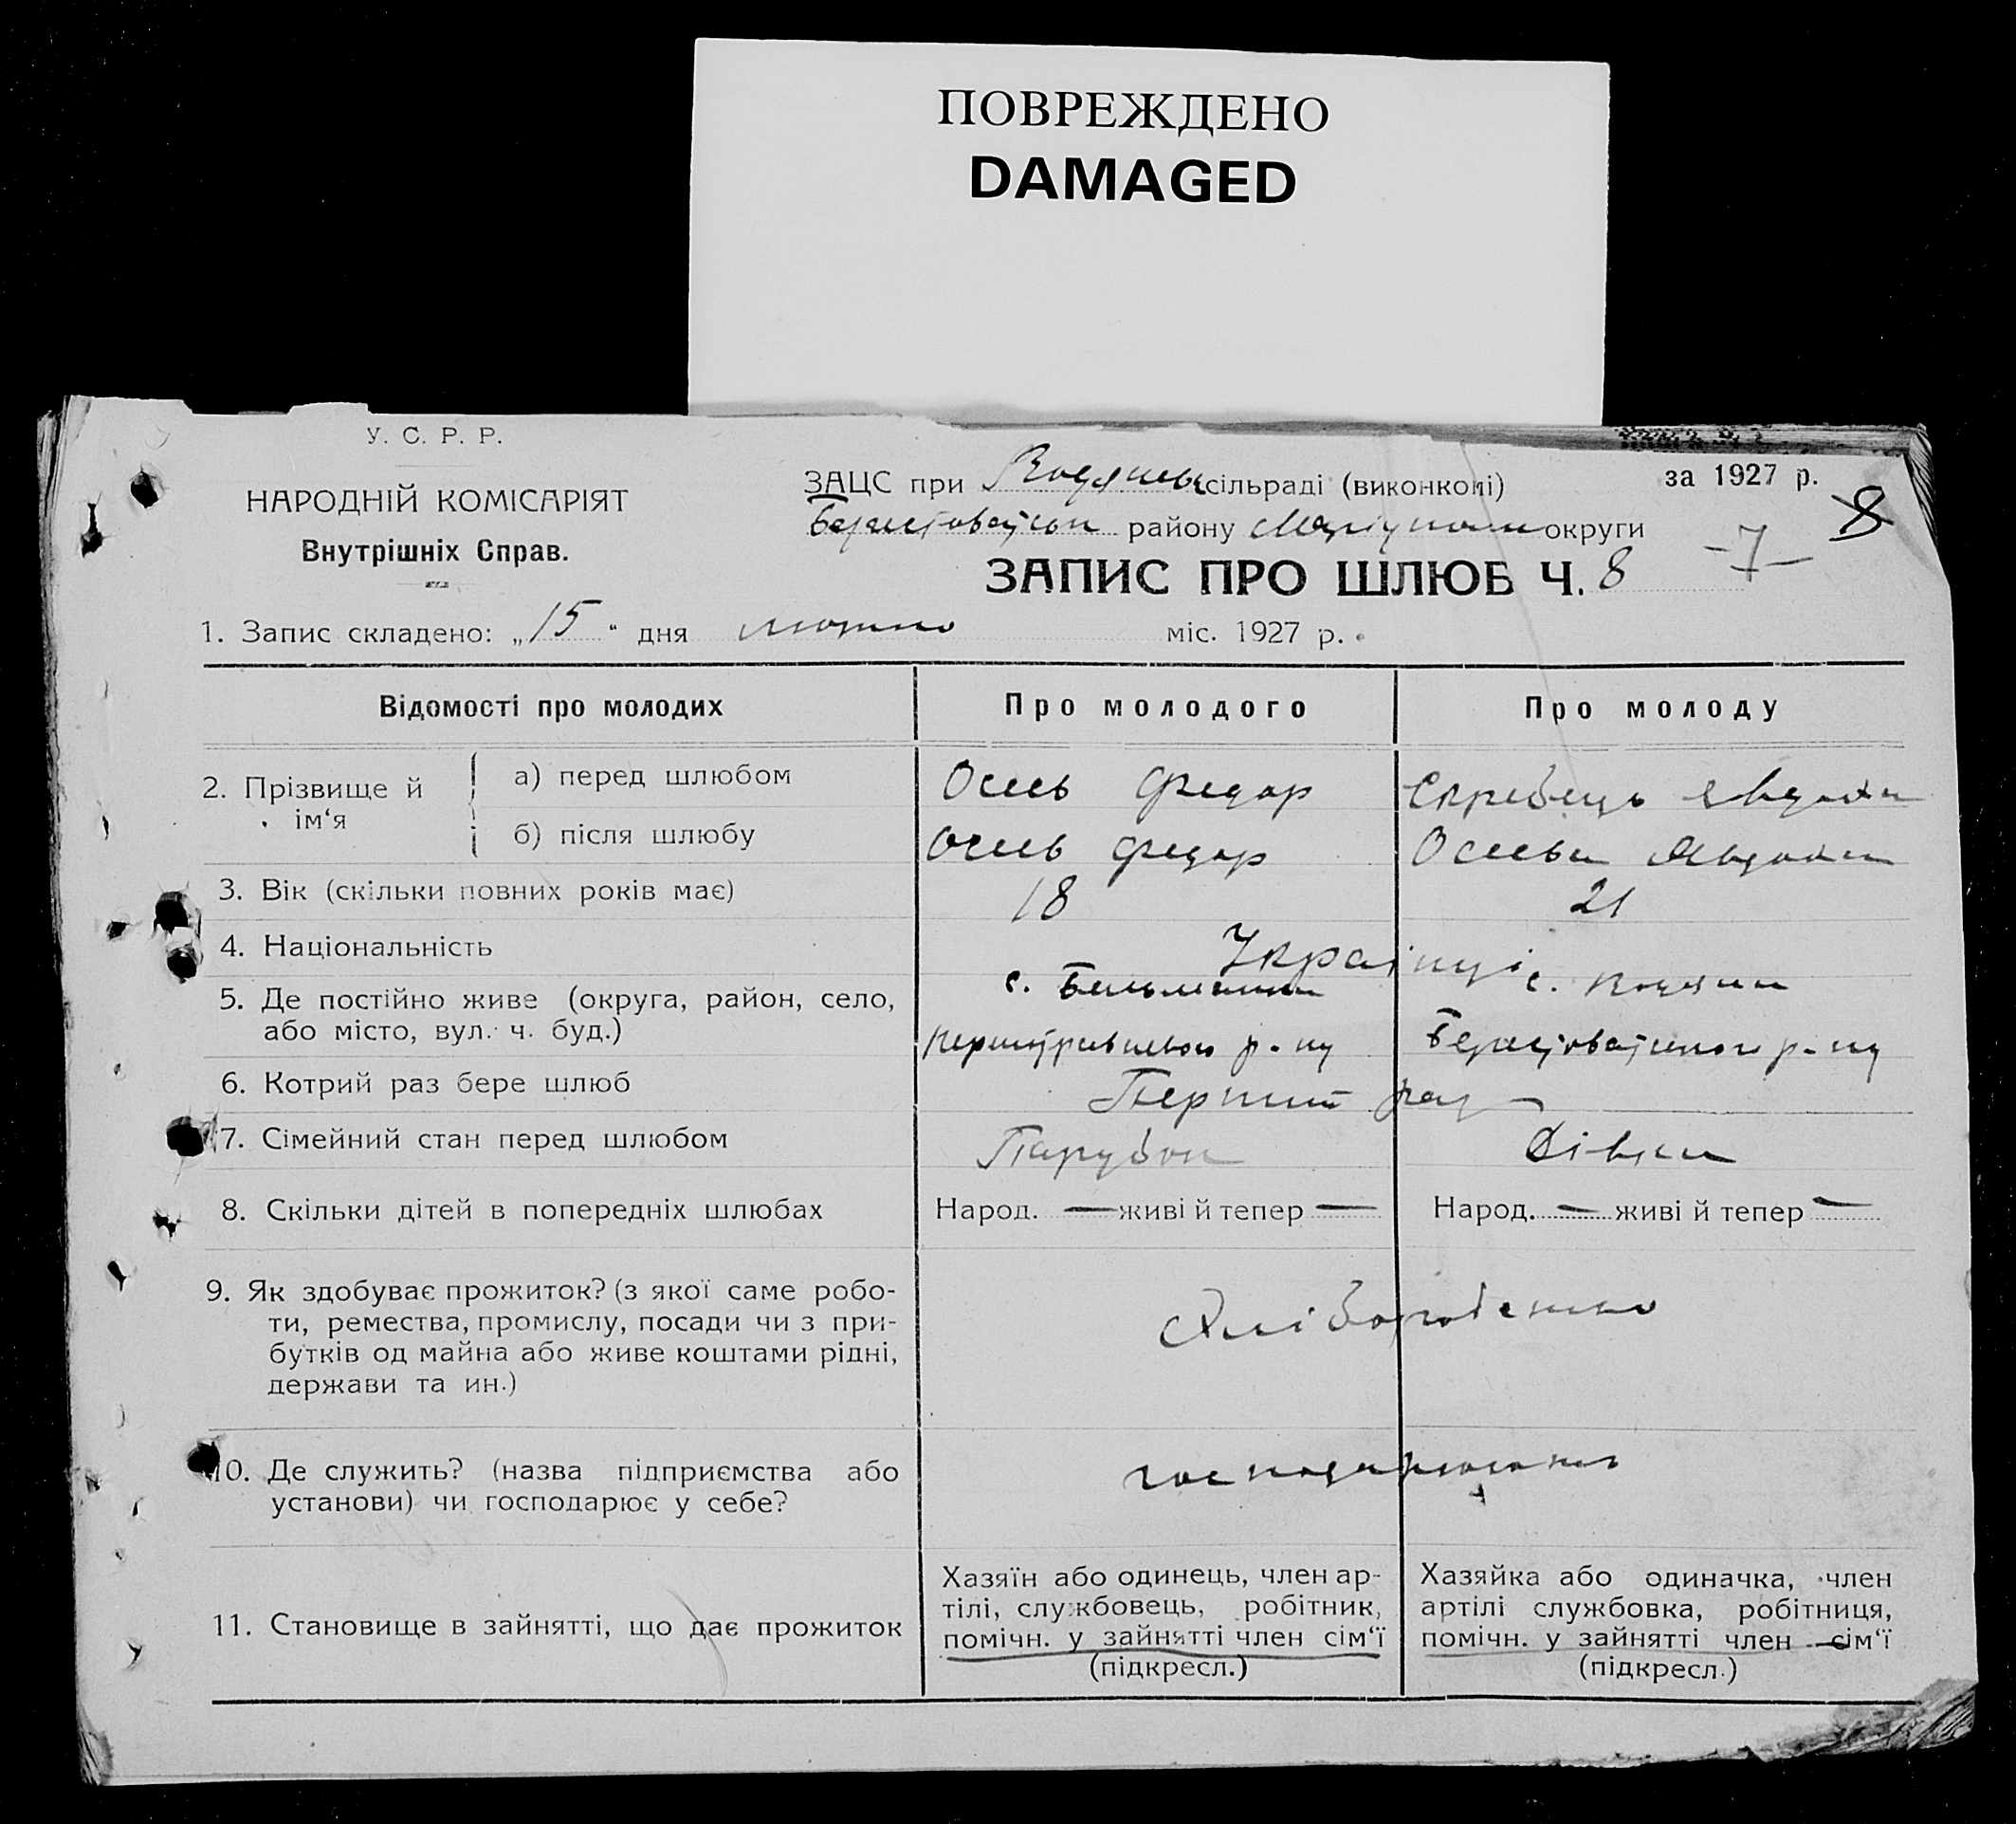 ПОВРЕЖДЕНО
DAMAGED
У. С. Р. Р.
НАРОДНІЙ КОМІСАРІЯТ
Внутрішніх Справ.
ЗАЦС при сільраді (виконкомі)
за 1927 р.
району округи
8
-7-
ЗАПИС ПРО ШЛЮБ Ч. 8
1. Запис складено: „15“ дня лютого міс. 1927 р.
Відомості про молодих
Про молодого
Про молоду
2. Прізвище й ім‘я
а) перед шлюбом
Осев Федор
Скребець Явдоха
б) після шлюбу
Осев Федор
Осева Явдоха
3. Вік (скільки повних років має)
18
21
4. Національність
Українці
5. Де постійно живе (округа, район, село,
або місто, вул. ч. буд.)
с.
с.
р-ну
р-ну
6. Котрий раз бере шлюб
Перший раз
7. Сімейний стан перед шлюбом
Парубок
Дівка
8. Скільки дітей в попередніх шлюбах
Народ. — живі й тепер —
Народ. — живі й тепер —
9. Як здобуває прожиток? (з якої саме робо-
ти, ремества, промислу, посади чи з при-
бутків од майна або живе коштами рідні,
держави та ин.)
Хліборобство
10. Де служить? (назва підприємства або
установи) чи господарює у себе?
11. Становище в зайнятті, що дає прожиток
Хазяїн або одинець, член ар-
тілі, службовець, робітник,
помічн. у зайнятті член сім‘ї
(підкресл.)
Хазяйка або одиначка, член
артілі службовка, робітниця,
помічн. у зайнятті член сім‘ї
(підкресл.)